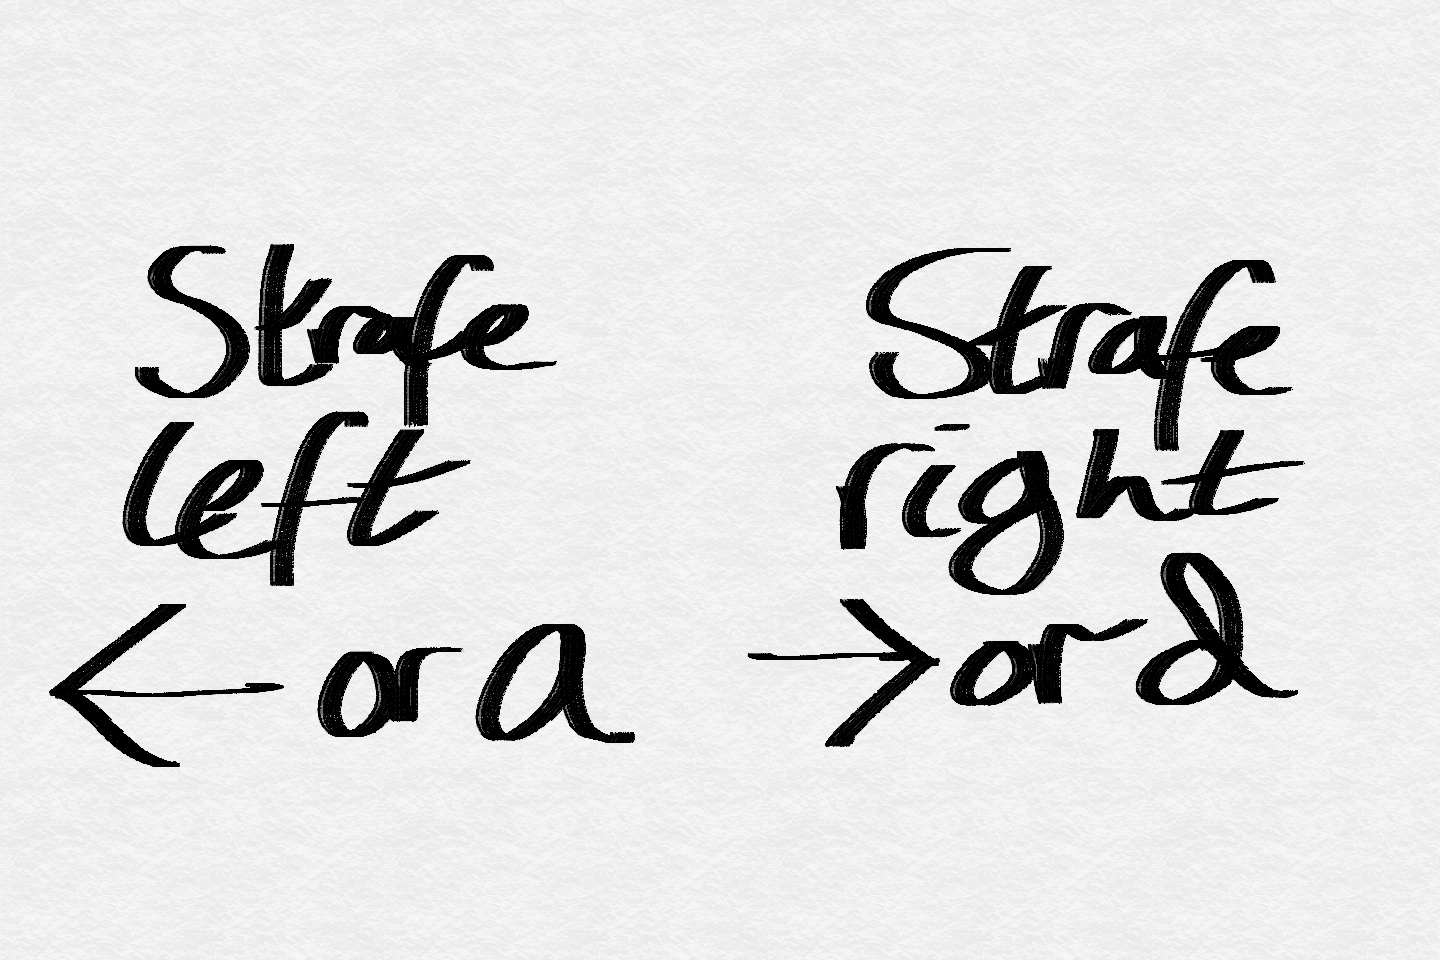 Strafe
left
← or a
Strafe
right
→ or d